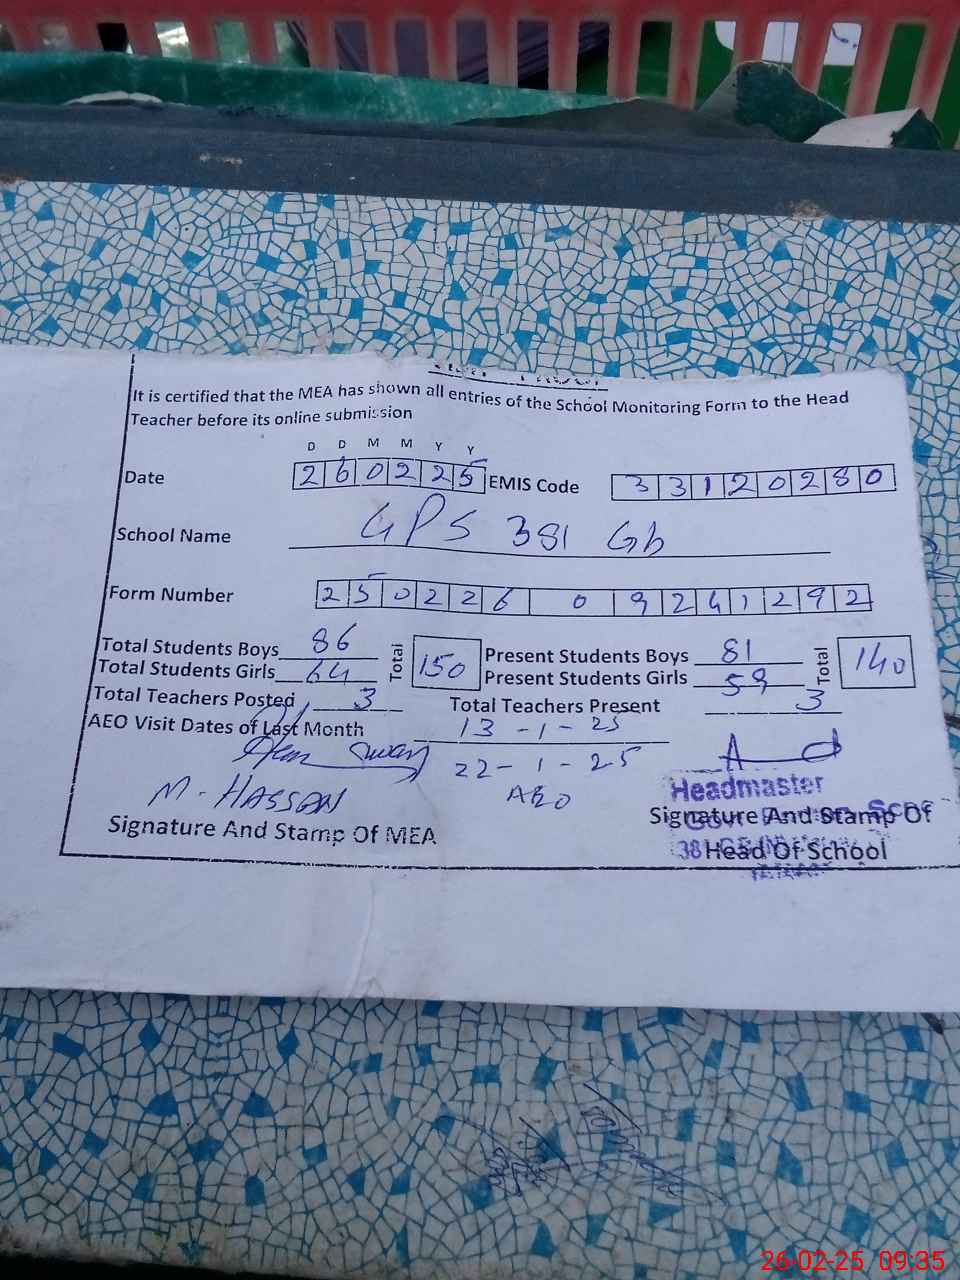 It is certified that the MEA has shown all entries of the School Monitoring Form to the Head
Teacher before its online submission
D D M M Y Y
Date 260225 EMIS Code 33120280
School Name GPS 381 Gb
Form Number 250226 0 9241292
Total Students Boys 86 Total 150 Present Students Boys 81 Total 140
Total Students Girls 64 Present Students Girls 59
Total Teachers Posted 3 Total Teachers Present 3
AEO Visit Dates of Last Month 13-1-25
22-1-25
M. HASSAN AEO Headmaster
Signature And Stamp Of MEA Signature And Stamp Of
Head Of School
26-02-25 09:35